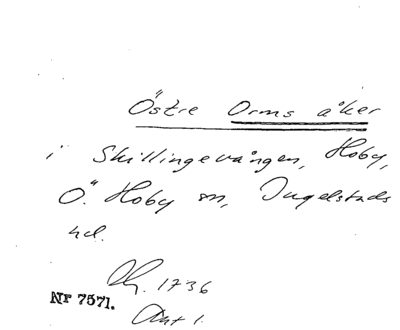 Östre Orms åker
i Skillingevången, Hoby,
Ö. Hoby sn, Ingelstads
hd.
Lh. 1736
Nr 7571.
Akt 1.